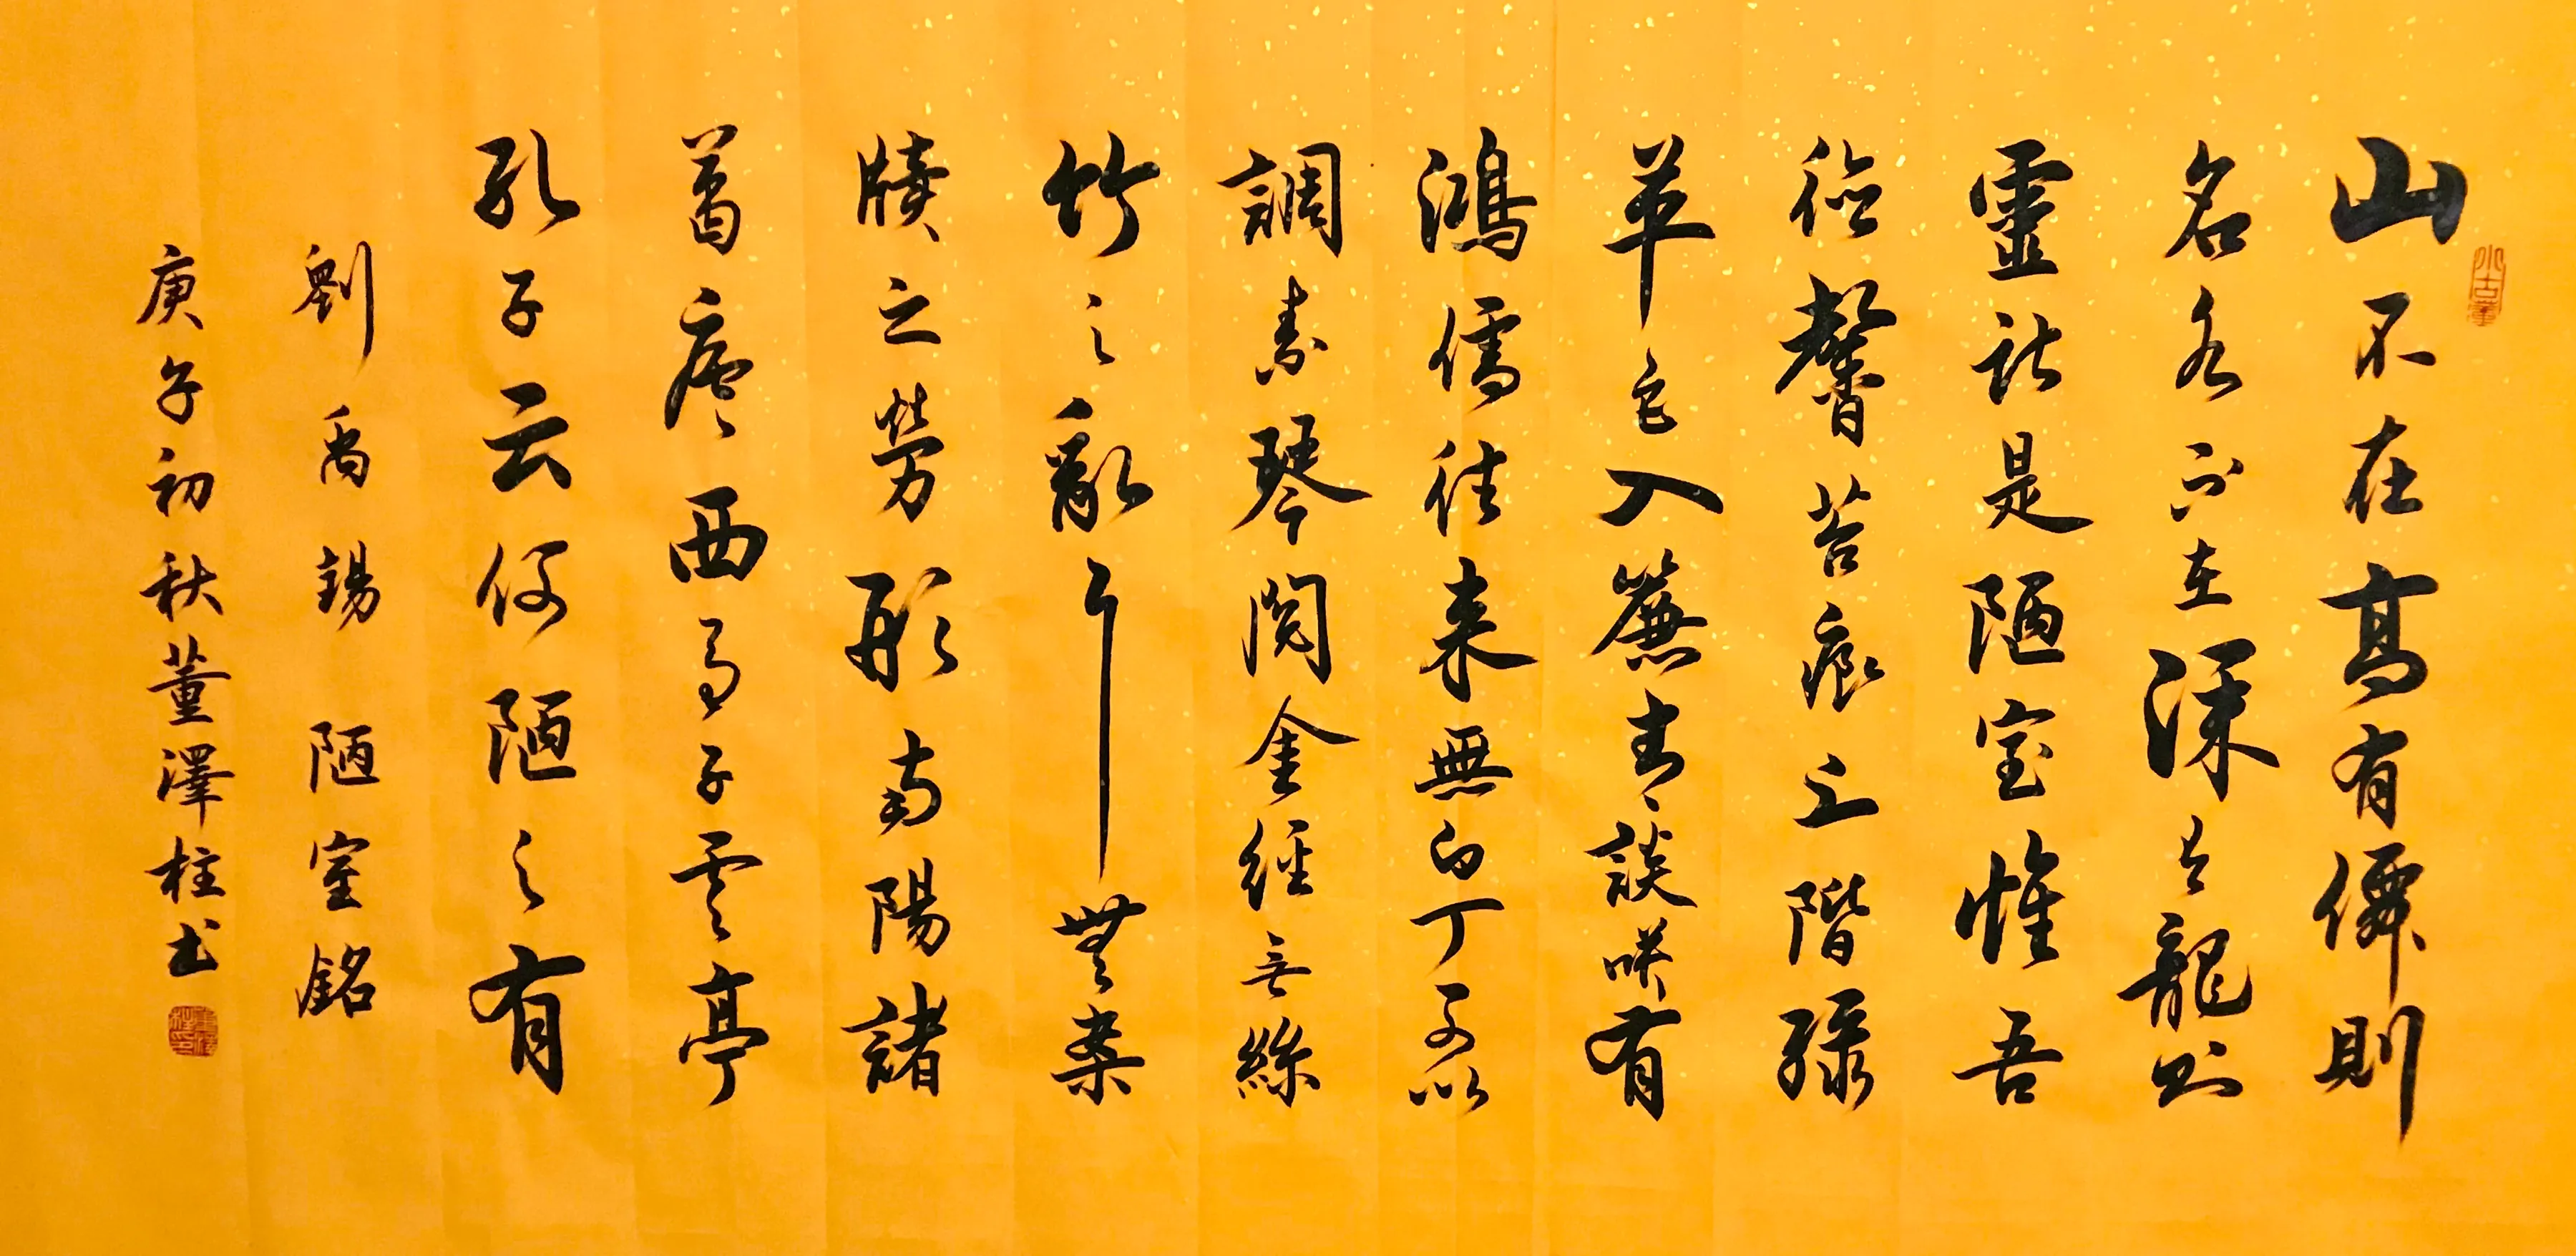 小古董
山不在高有僊則
名水不在深有龍则
靈斯是陋室惟吾
德馨苔痕上階緑
草色入簾青談咲有
鴻儒往来無白丁可以
調素琴閲金經无絲
竹之亂耳無案
牘之勞形南陽諸
葛廬西蜀子雲亭
孔子云何陋之有
劉禹錫 陋室銘
庚子初秋董澤柱书